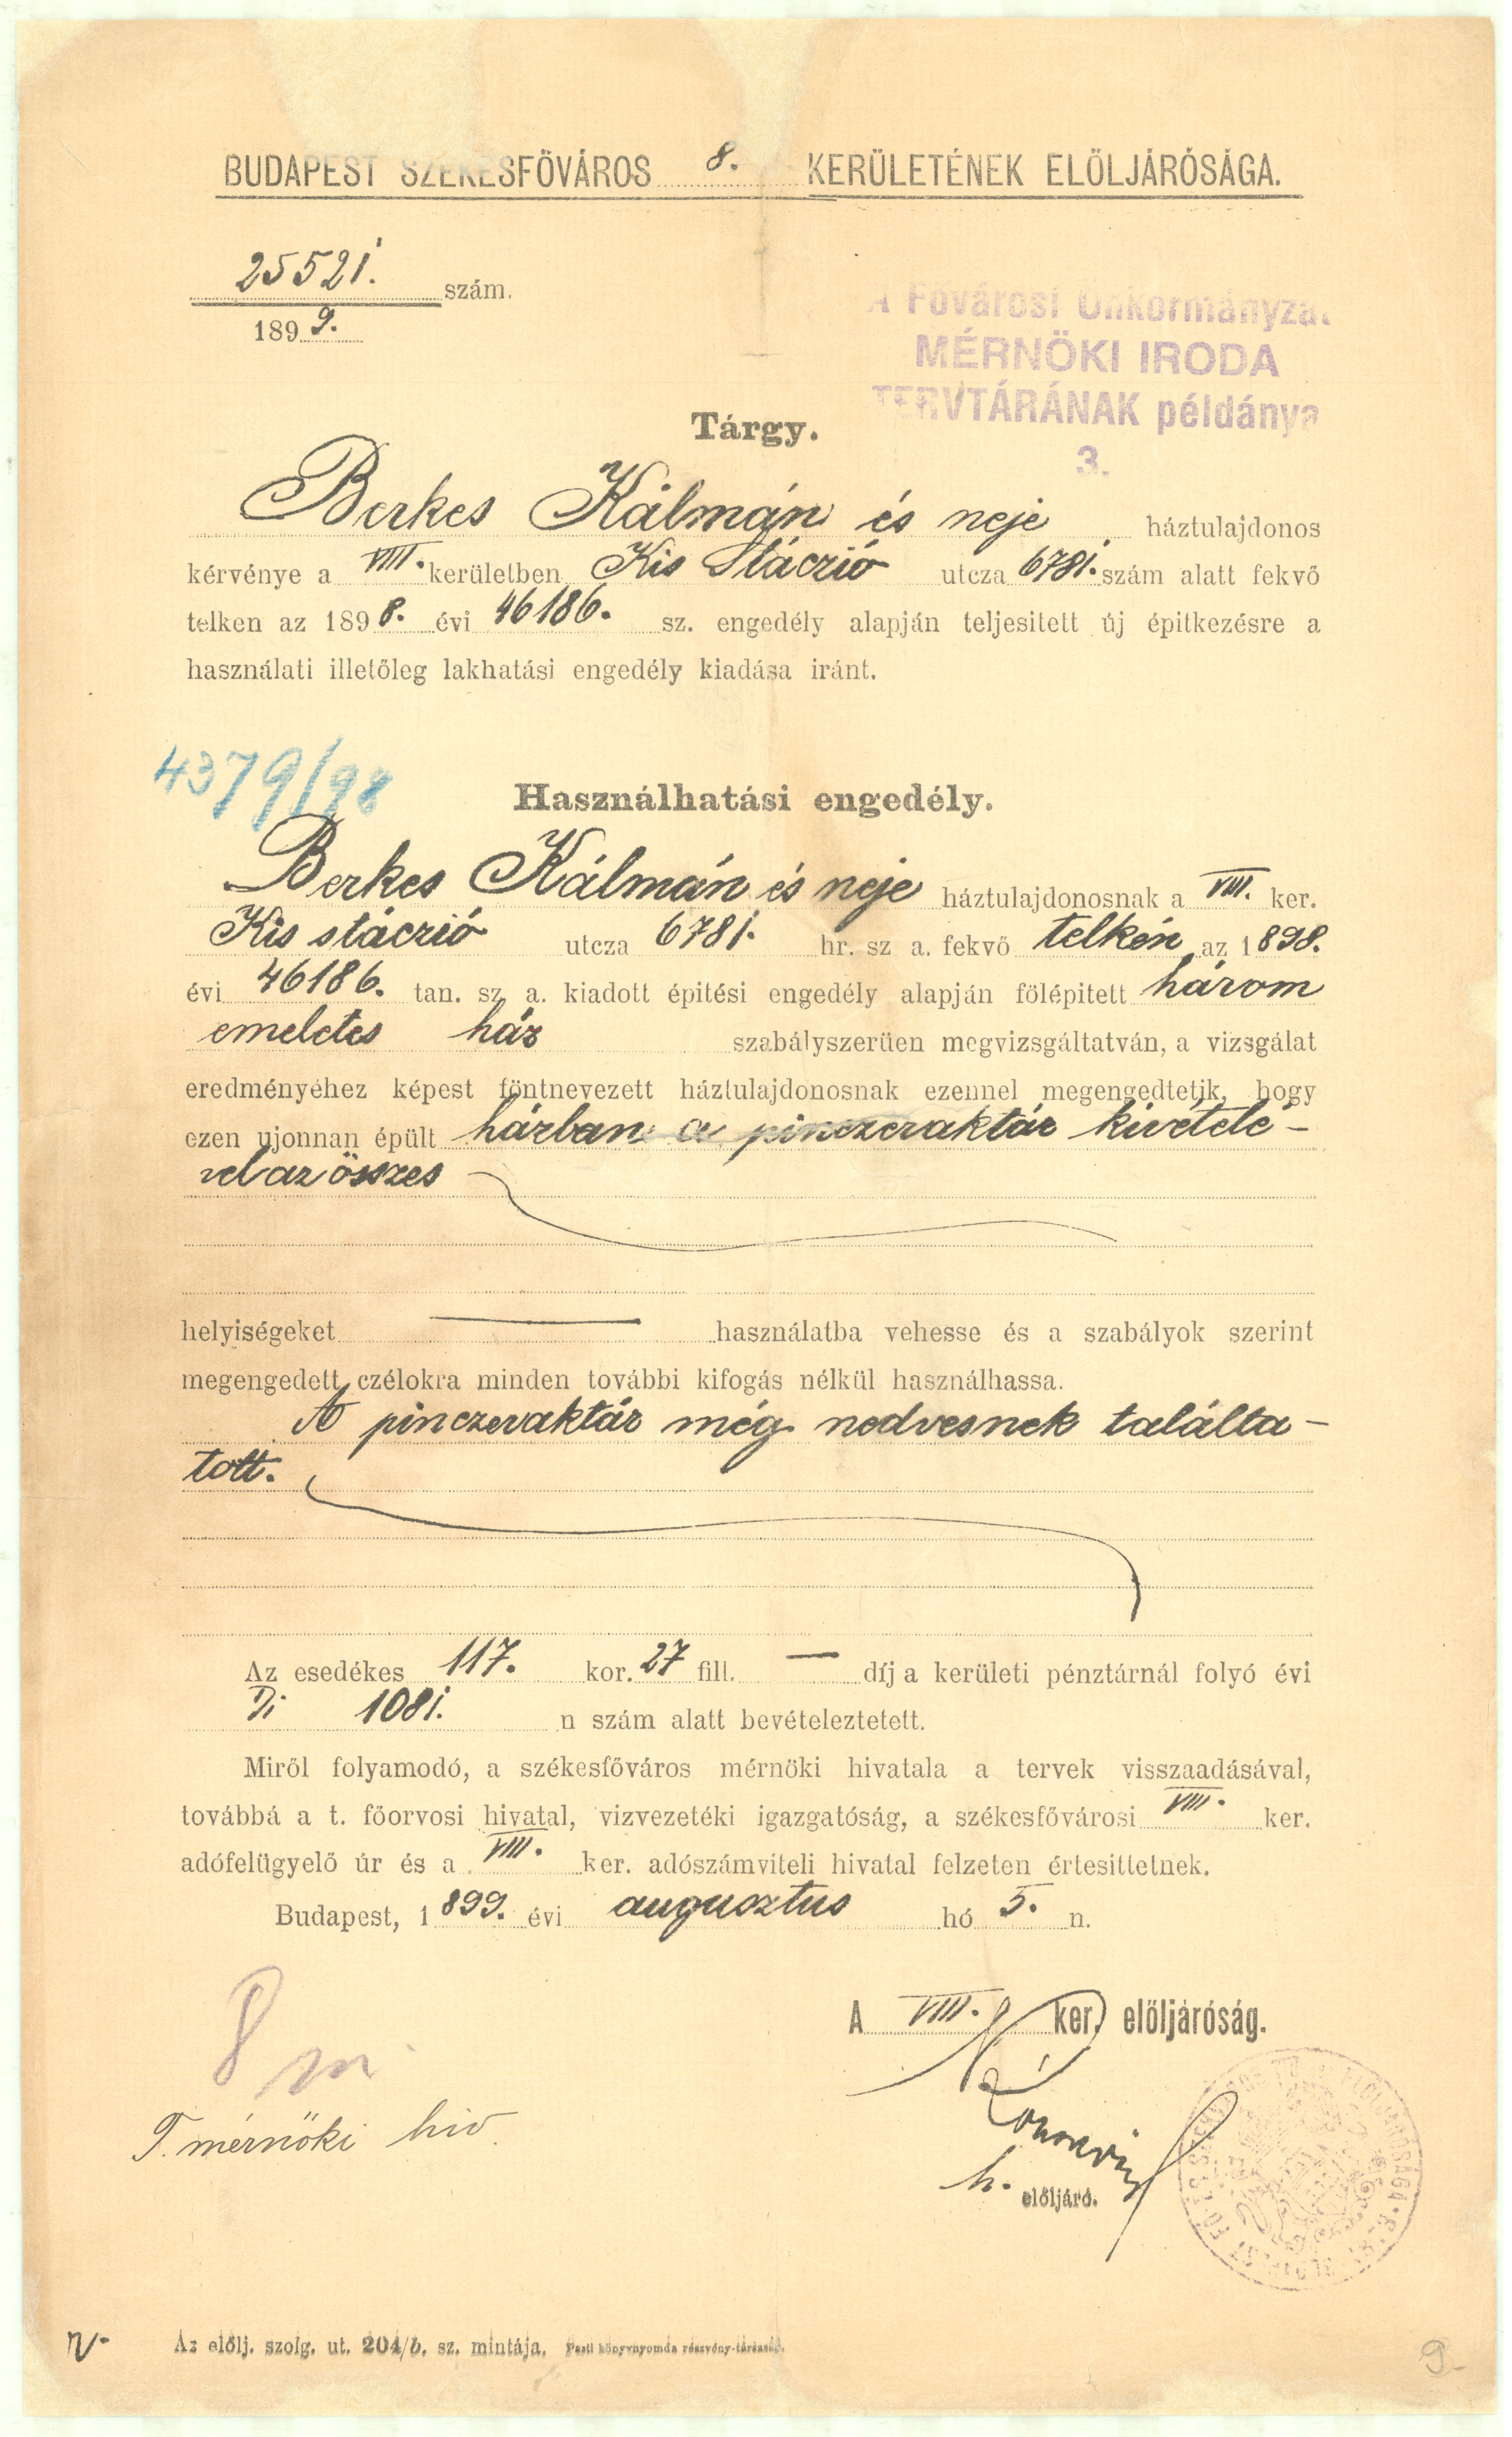 BUDAPEST SZÉKESFŐVÁROS 8. KERÜLETÉNEK ELŐLJÁRÓSÁGA.
25521. szám.
1899.
A Fővárosi Önkormányzat
MÉRNÖKI IRODA
TERVTÁRÁNAK példánya
3.
Tárgy.
Berkes Kálmán és neje háztulajdonos
kérvénye a VIII. kerületben Kis Stáczió utcza 6781. szám alatt fekvő
telken az 1898. évi 46186. sz. engedély alapján teljesitett új épitkezésre a
használati illetőleg lakhatási engedély kiadása iránt.
4379/98
Használhatási engedély.
Berkes Kálmán és neje háztulajdonosnak a VIII. ker.
Kis stáczió utcza 6781. hr. sz. a. fekvő telkén az 1898.
évi 46186. tan. sz. a. kiadott épitési engedély alapján fölépitett három
emeletes ház szabályszerüen megvizsgáltatván, a vizsgálat
eredményéhez képest föntnevezett háztulajdonosnak ezennel megengedtetik, hogy
ezen ujonnan épült házban a pinczeraktár kivételé-
vel az összes
helyiségeket használatba vehesse és a szabályok szerint
megengedett czélokra minden további kifogás nélkül használhassa.
A pinczeraktár még nedvesnek találta-
tott.
Az esedékes 117. kor. 27 fill. — díj a kerületi pénztárnál folyó évi
1081. n szám alatt bevételeztetett.
Miről folyamodó, a székesfőváros mérnöki hivatala a tervek visszaadásával,
továbbá a t. főorvosi hivatal, vizvezetéki igazgatóság, a székesfővárosi VIII. ker.
adófelügyelő úr és a VIII. ker. adószámviteli hivatal felzeten értesittetnek.
Budapest, 1899. évi augusztus hó 5. n.
A VIII. ker. előljáróság.
8 m.
T. mérnöki hiv.
h. előljáró.
Az előlj. szolg. ut. 204/b. sz. mintája. Pesti könyvnyomda részvény-társaság.
9.